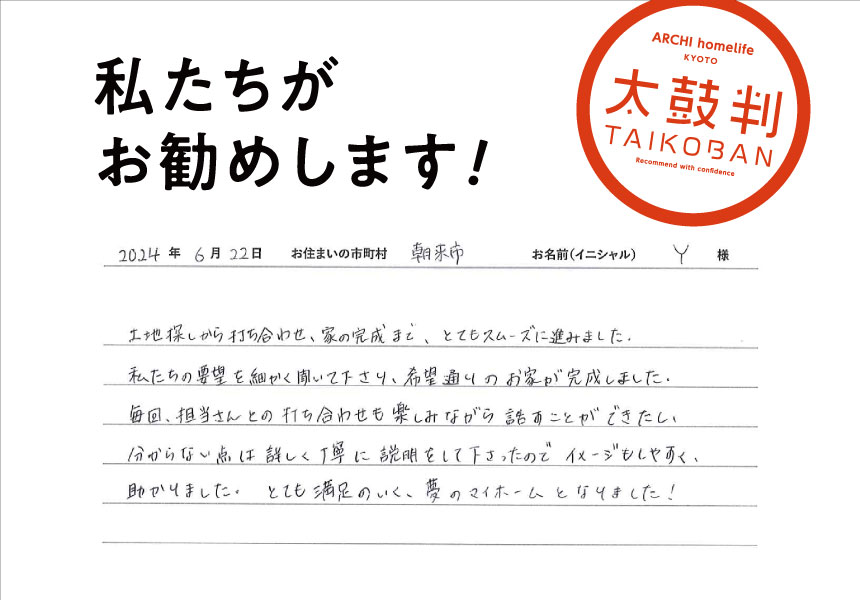 私たちが
お勧めします!
ARCHI homelife
KYOTO
太鼓判
TAIKOBAN
Recommend with confidence
2024 年 6 月 22 日 お住まいの市町村 朝来市 お名前(イニシャル) Y 様
土地探しから打ち合わせ、家の完成まで、とてもスムーズに進みました。
私たちの要望を細かく聞いて下さり、希望通りのお家が完成しました。
毎回、担当さんとの打ち合わせも楽しみながら話すことができたし、
分からない点は詳しく丁寧に説明をして下さったのでイメージもしやすく、
助かりました。とても満足のいく、夢のマイホームとなりました!